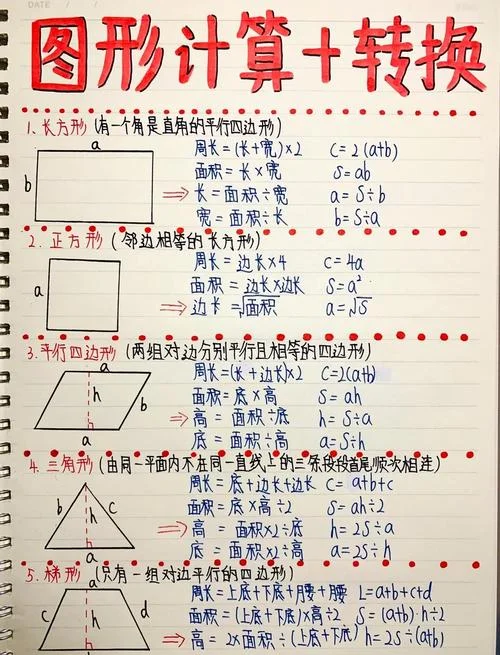 DATE / /
图形计算+转换
1. 长方形 (有一个角是直角的平行四边形)
a
b
周长=(长+宽)×2 C=2(a+b)
面积=长×宽 S=ab
⇒ 长=面积÷宽 a=S÷b
宽=面积÷长 b=S÷a
2. 正方形 (邻边相等的长方形)
a
周长=边长×4 C=4a
面积=边长×边长 S=a²
⇒ 边长=√面积 a=√S
3. 平行四边形 (两组对边分别平行且相等的四边形)
a
h
b
a
周长=(长+边长)×2 C=2(a+b)
面积=底×高 S=ah
⇒ 高=面积÷底 h=S÷a
底=面积÷高 a=S÷h
4. 三角形 (由同一平面内不在同一直线上的三条段段首尾顺次相连)
b
h
c
a
周长=底+边长+边长 C=a+b+c
面积=底×高÷2 S=ah÷2
⇒ 高=面积×2÷底 h=2S÷a
底=面积×2÷高 a=2S÷h
5. 梯形 (只有一组对边平行的四边形)
a
c
h
d
b
周长=上底+下底+腰+腰 L=a+b+c+d
面积=(上底+下底)×高÷2 S=(a+b)·h÷2
⇒ 高=2×面积÷(上底+下底) h=2S÷(a+b)